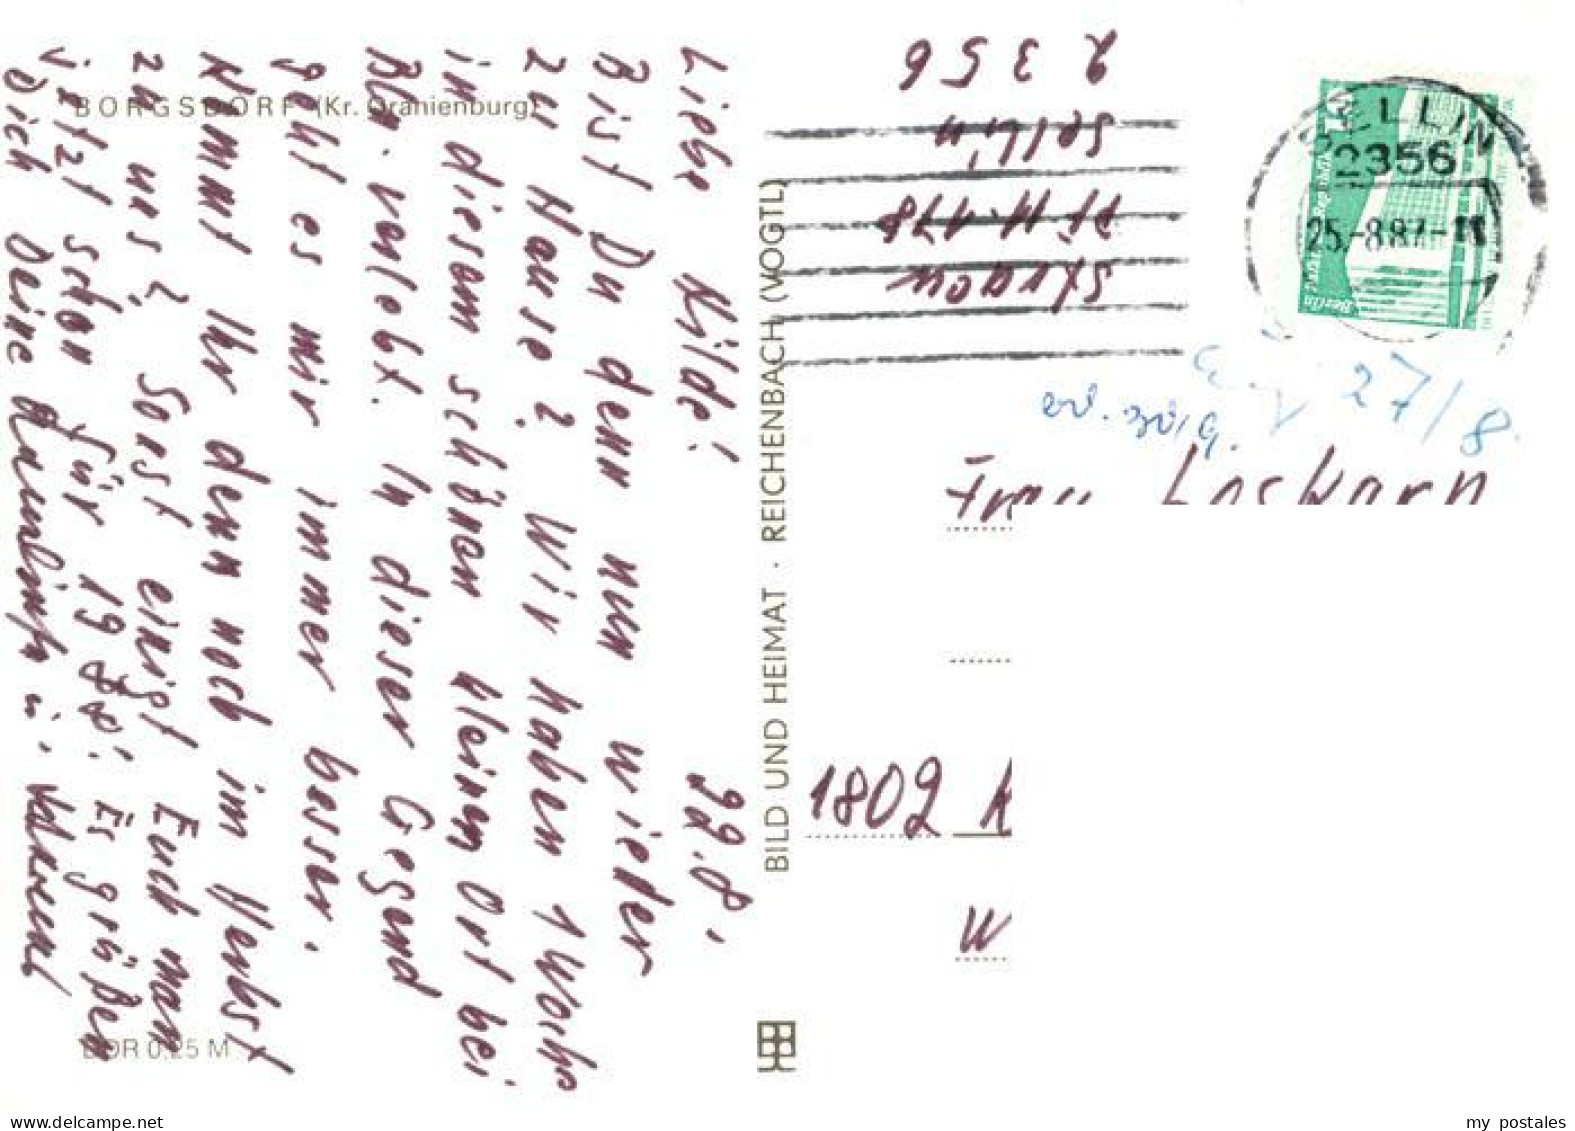 BORGSDORF (Kr. Oranienburg)
Liebe Hilde! 22.8.
Bist Du denn nun wieder
zu Hause? Wir haben 1 Woche
in diesem schönen kleinen Ort bei
Bln. verlebt. In dieser Gegend
geht es mir immer besser.
Kommt Ihr denn noch im Herbst
zu uns? Sonst einigt Euch man
jetzt schon für 1988! Es grüßen
Dich Deine
DDR 0.25 M
BILD UND HEIMAT · REICHENBACH (VOGTL)
Pf 11-178
Sellin
2356
SELLIN
2356
25.-8.87
10
Palast der Republik
Berlin
DDR
27/8
Frau
1802 K
W
www.delcampe.net
my_postales